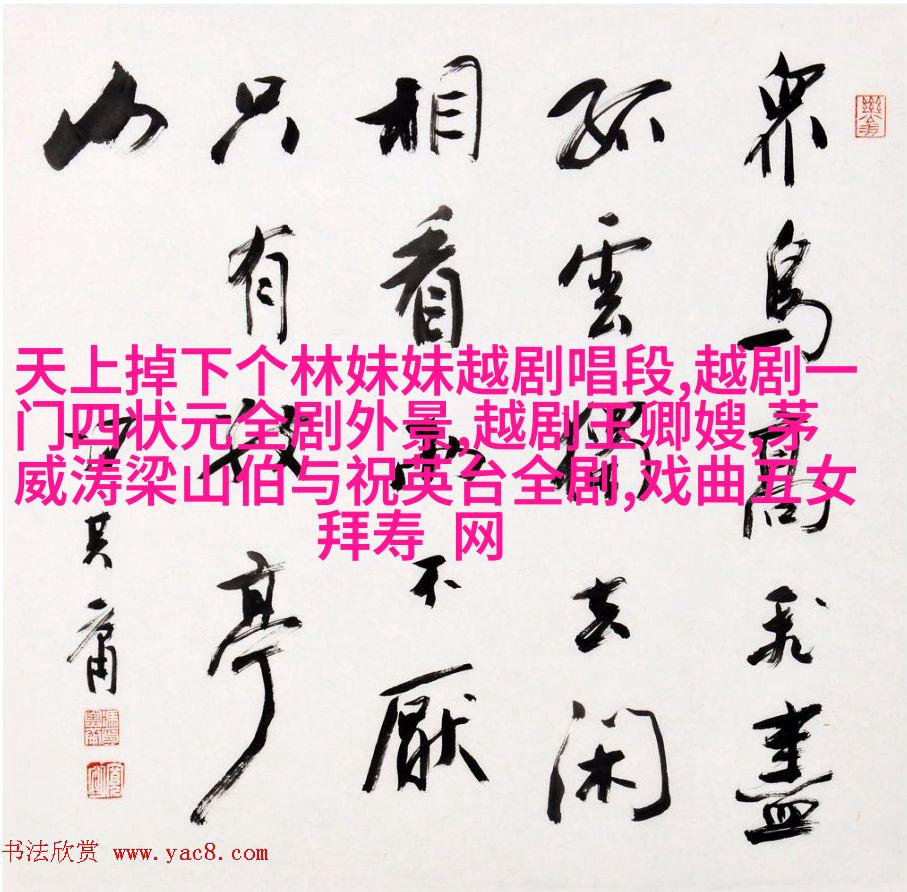 眾鳥高飛盡
孤雲獨去閑
相看兩不厭
只有敬亭
山
其庸
天上掉下个林妹妹越剧唱段,越剧一
门四状元全剧外景,越剧玉卿嫂,茅
威涛梁山伯与祝英台全剧,戏曲五女
拜寿 网
书法欣赏 www.yac8.com